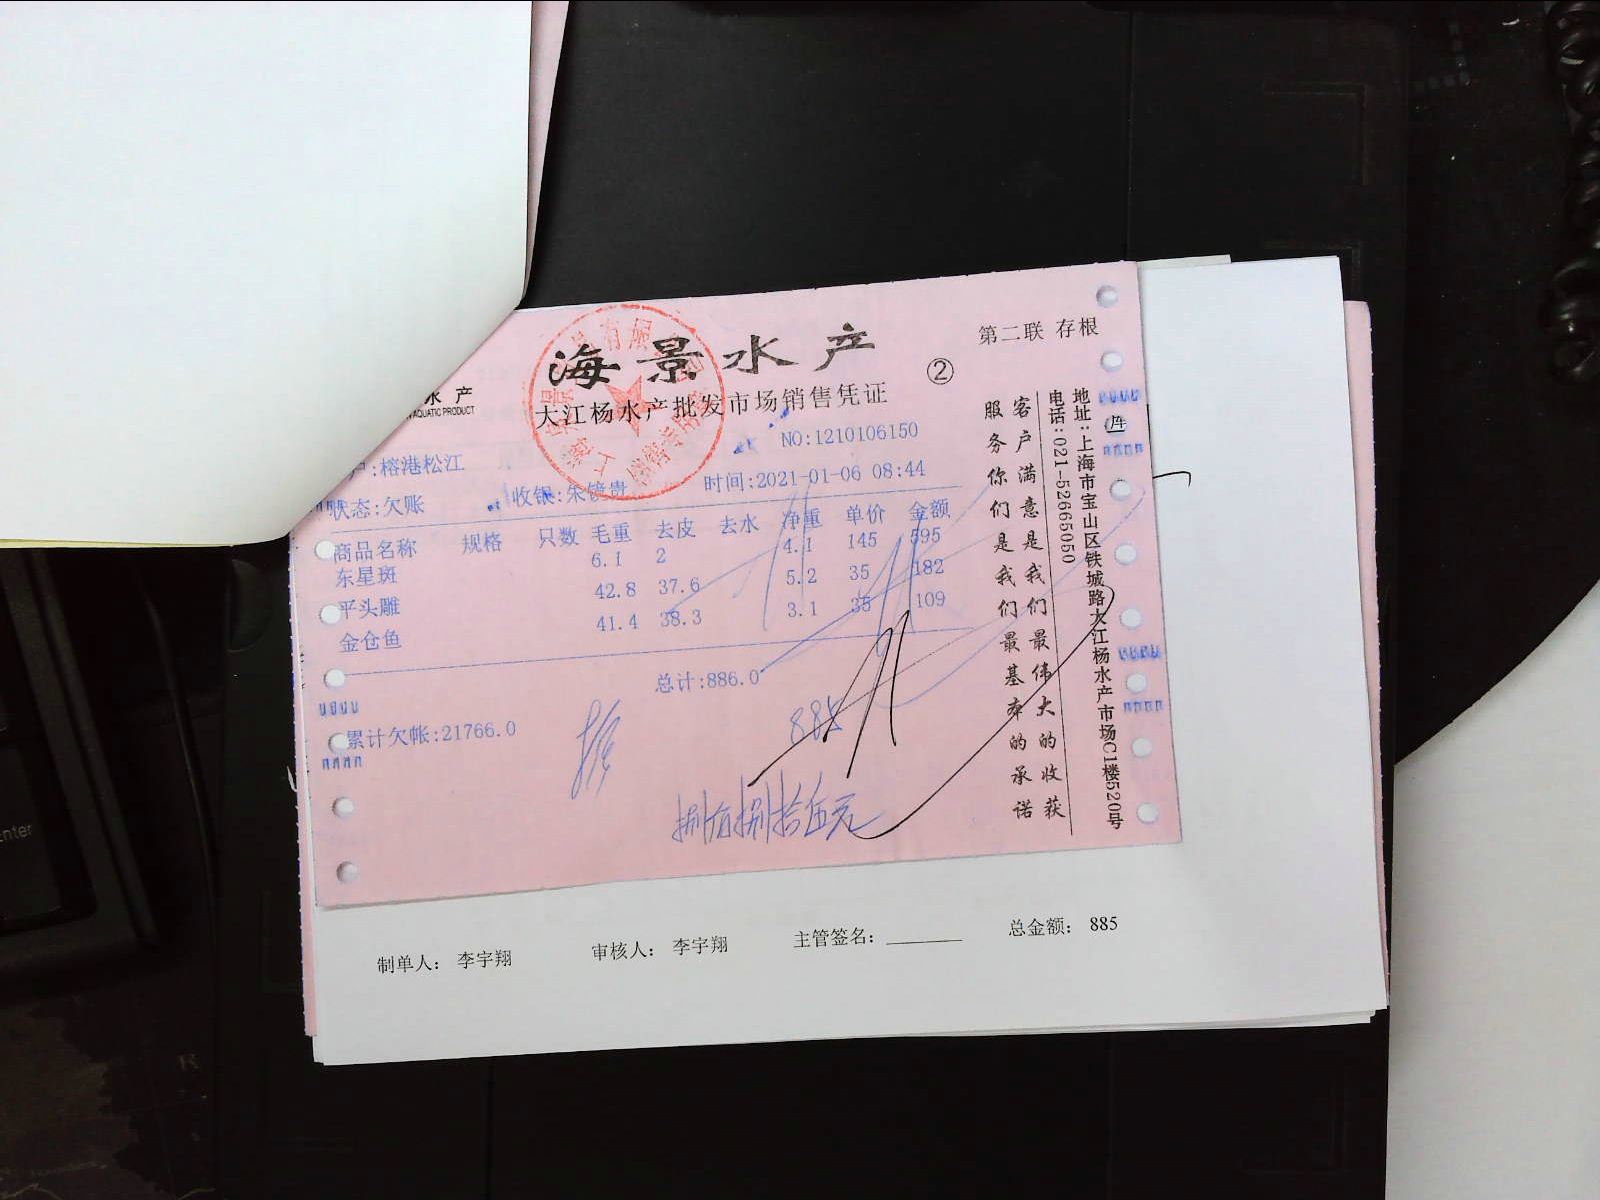 海景水产
第二联 存根
②
大江杨水产批发市场销售凭证
水产
AQUATIC PRODUCT
NO:1210106150
户:榕港松江
状态:欠账 收银:朱镜贵 时间:2021-01-06 08:44
商品名称 规格 只数 毛重 去皮 去水 净重 单价 金额
东星斑 6.1 2 4.1 145 595
平头雕 42.8 37.6 5.2 35 182
金仓鱼 41.4 38.3 3.1 35 109
总计:886.0
累计欠帐:21766.0
885
捌佰捌拾伍元
客户满意是我们最伟大的收获
服务你们是我们最基本的承诺
地址:上海市宝山区铁城路大江杨水产市场C1楼520号
电话:021-52665050
制单人： 李宇翔 审核人： 李宇翔 主管签名：______ 总金额： 885
Enter